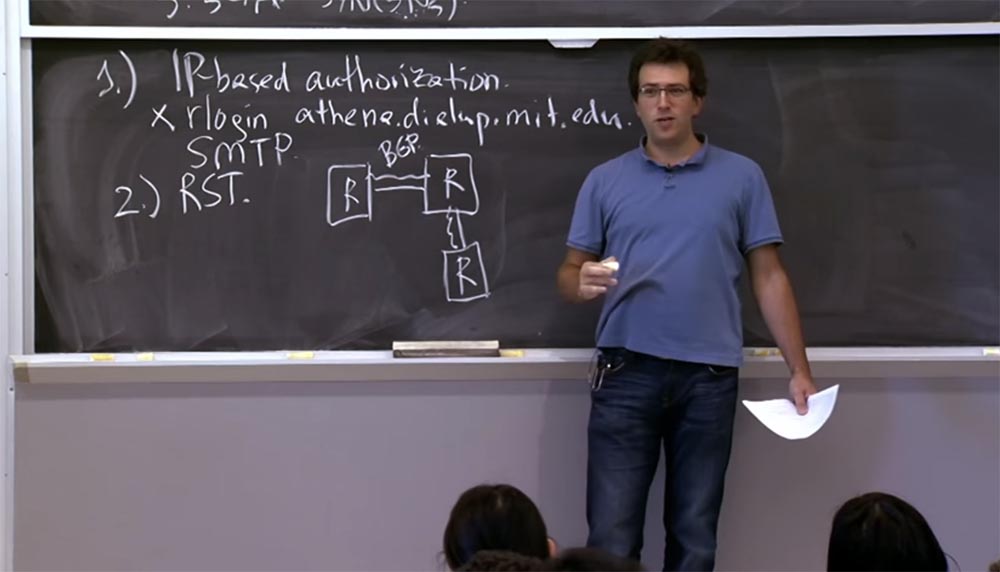 1.) IP-based authorization.
x rlogin athena.dialup.mit.edu.
SMTP.
2.) RST.
BGP.
R
R
R